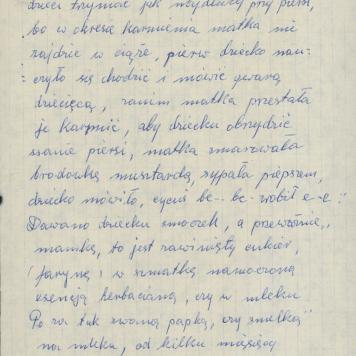 dzieci trzymać jak najdłużej przy piersi,
bo w okresie karmienia matka nie
zajdzie w ciążę, pierw dziecko nau-
czyło się chodzić i mówić gwarą
dziecięcą, zanim matka przestała
je karmić, aby dziecku obrzydzić
ssanie piersi, matka smarowała
brodawkę musztardą, sypała pieprzem,
dziecko mówiło, cycuś be-be- robił e-e
Dawano dziecku smoczek, a przeważnie,,
mamkę, to jest zawinięty cukier,
faryną i w szmatkę namoczoną
esencją herbacianą, czy w mleku
Po za tak zwaną papką, czy
na mleku, od kilku miesięcy